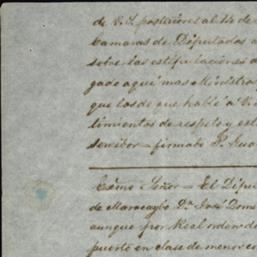 de V. S. posteriores al 14 de
Camaras de Diputados a
sobre las estipulaciones d
gado aqui mas Ministro
que los de que hablé a V.
timientos de respeto y est
servidor = firmado P.
Exmo Señor = El Dipu
de Maracaybo Dn. José Dom
aunque por Real orden de
puerto en clase de menor co